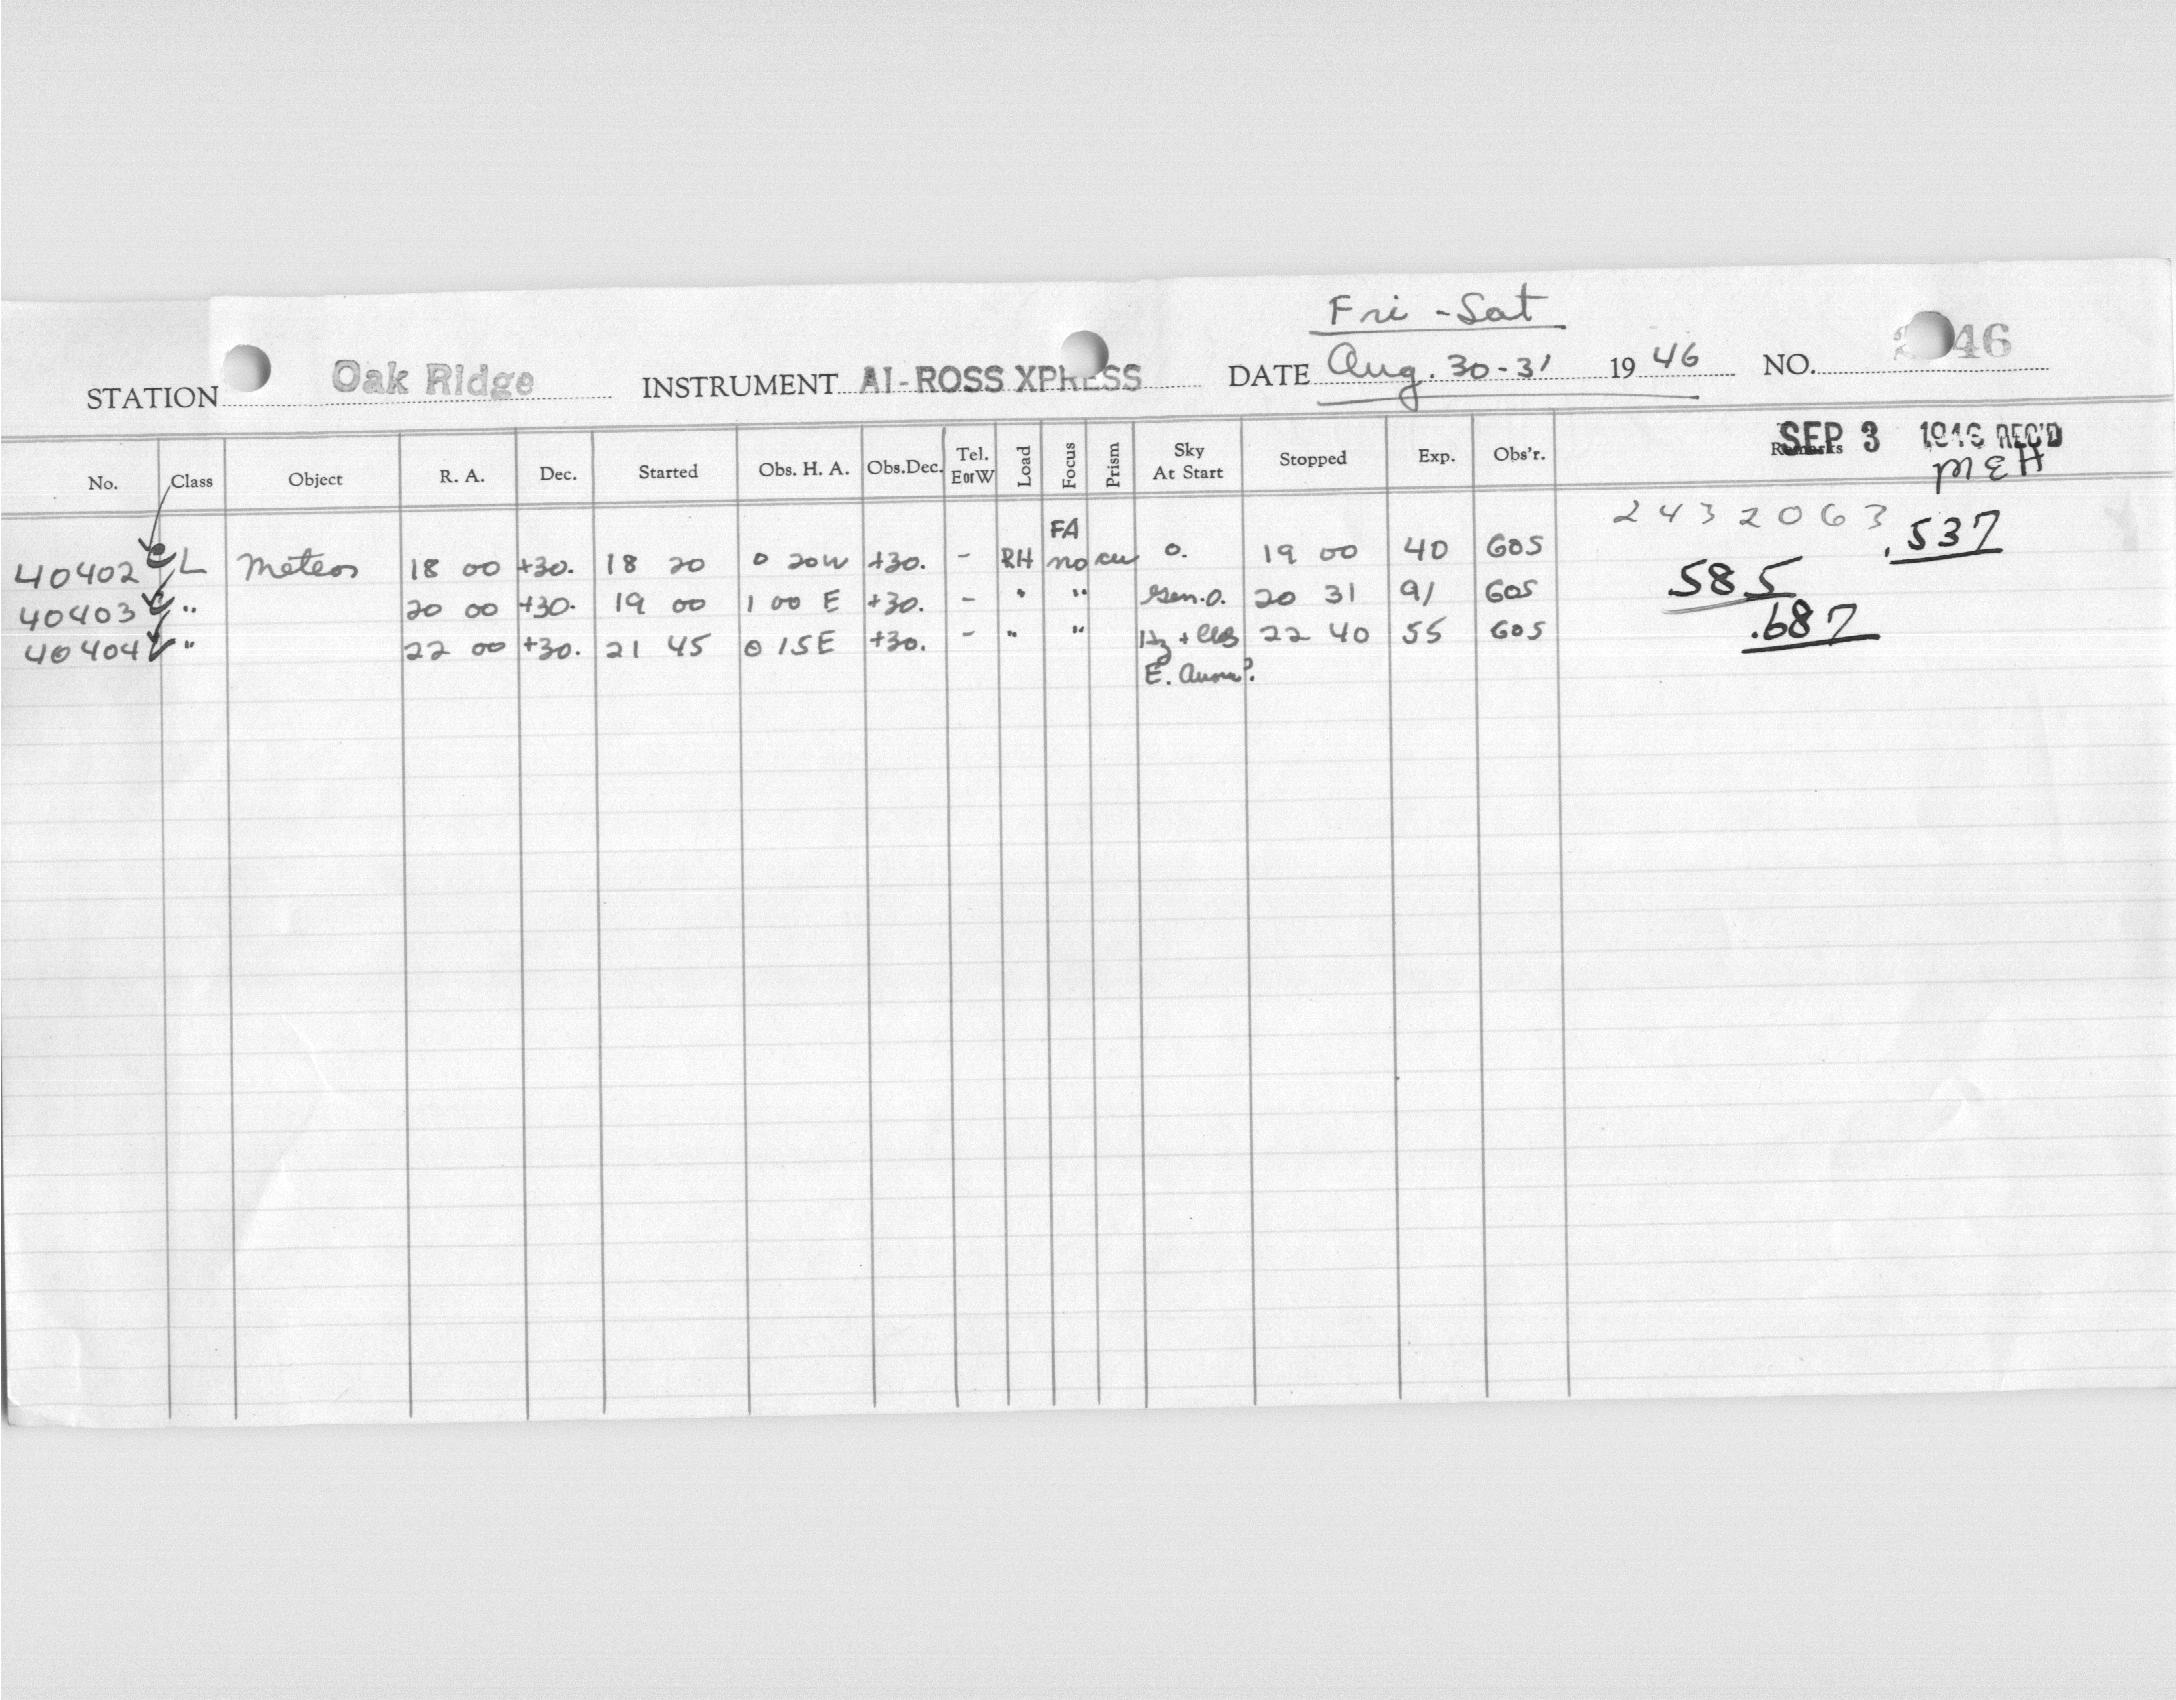 Fri - Sat
STATION Oak Ridge INSTRUMENT AI-ROSS XPRESS DATE Aug. 30-31 19 46 NO. 46
SEP 3 1946 REC'D
MEH
No. Class Object R. A. Dec. Started Obs. H. A. Obs.Dec. Tel. E or W Load Focus Prism Sky At Start Stopped Exp. Obs'r. Remarks
FA 2432063 .537
40402 L Meteos 18 00 +30. 18 20 0 20W +30. - RH no cu o. 19 00 40 GOS .585
40403 " 20 00 +30. 19 00 1 00 E +30. - " " Gen. o. 20 31 91 GOS .687
40404 " 22 00 +30. 21 45 0 15E +30. - " " Hz + Clds 22 40 55 GOS
E.